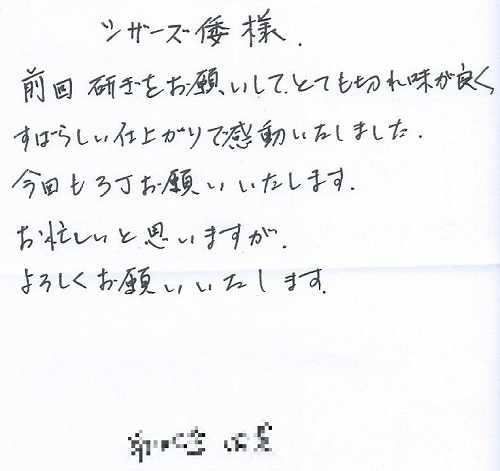 シザーズ倭様.
前回研ぎをお願いして、とても切れ味が良く
すばらしい仕上がりで感動いたしました.
今回も3丁お願いいたします.
お忙しいと思いますが.
よろしくお願いいたします.